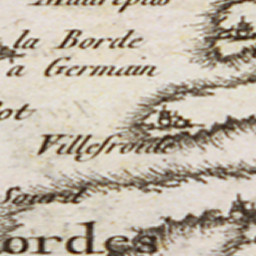 Maurepas
la Borde
a Germain
lot
Villefroide
Sourd
ordes